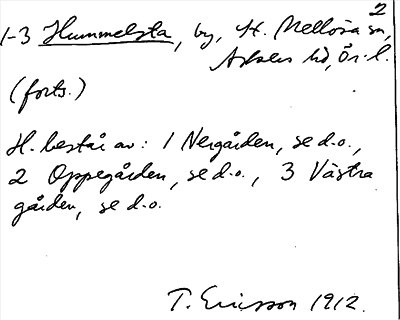 2
1-3 Hummelsta, by, St. Mellösa sn,
Askers hd, Ör. l.
(forts.)
H. består av: 1 Nergården, se d.o.,
2 Oppegården, se d.o., 3 Västra
gården, se d.o.
T. Ericsson 1912.